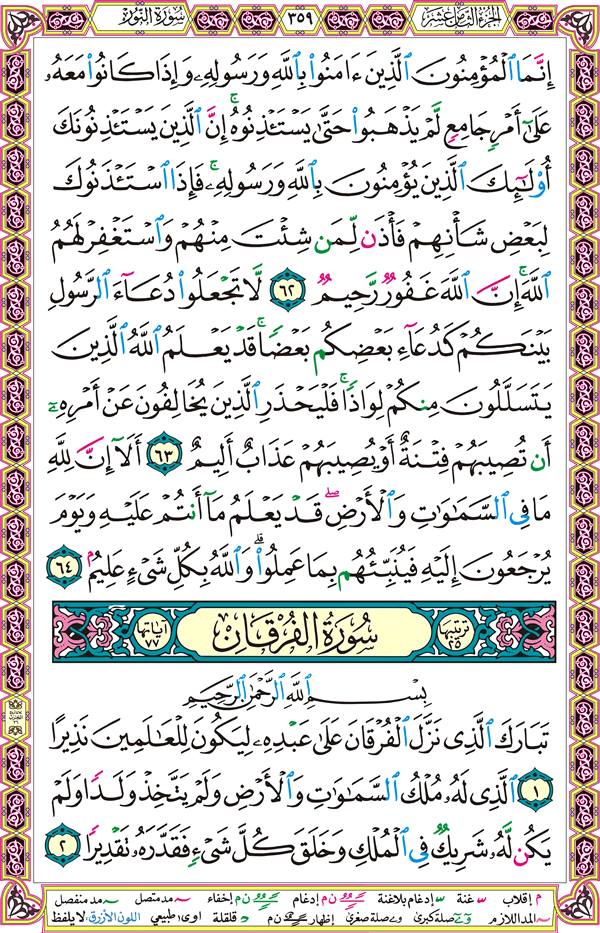 سُورَةُ النُّورِ
٣٥٩
الجُزْءُ الثَّامِنَ عَشَرَ
إِنَّمَا ٱلْمُؤْمِنُونَ ٱلَّذِينَ ءَامَنُوا۟ بِٱللَّهِ وَرَسُولِهِۦ وَإِذَا كَانُوا۟ مَعَهُۥ
عَلَىٰٓ أَمْرٍ جَامِعٍ لَّمْ يَذْهَبُوا۟ حَتَّىٰ يَسْتَـْٔذِنُوهُ ۚ إِنَّ ٱلَّذِينَ يَسْتَـْٔذِنُونَكَ
أُو۟لَـٰٓئِكَ ٱلَّذِينَ يُؤْمِنُونَ بِٱللَّهِ وَرَسُولِهِۦ ۚ فَإِذَا ٱسْتَـْٔذَنُوكَ
لِبَعْضِ شَأْنِهِمْ فَأْذَن لِّمَن شِئْتَ مِنْهُمْ وَٱسْتَغْفِرْ لَهُمُ
ٱللَّهَ ۚ إِنَّ ٱللَّهَ غَفُورٌ رَّحِيمٌ ٦٢ لَّا تَجْعَلُوا۟ دُعَآءَ ٱلرَّسُولِ
بَيْنَكُمْ كَدُعَآءِ بَعْضِكُم بَعْضًا ۚ قَدْ يَعْلَمُ ٱللَّهُ ٱلَّذِينَ
يَتَسَلَّلُونَ مِنكُمْ لِوَاذًا ۚ فَلْيَحْذَرِ ٱلَّذِينَ يُخَالِفُونَ عَنْ أَمْرِهِۦٓ
أَن تُصِيبَهُمْ فِتْنَةٌ أَوْ يُصِيبَهُمْ عَذَابٌ أَلِيمٌ ٦٣ أَلَآ إِنَّ لِلَّهِ
مَا فِى ٱلسَّمَـٰوَٰتِ وَٱلْأَرْضِ ۖ قَدْ يَعْلَمُ مَآ أَنتُمْ عَلَيْهِ وَيَوْمَ
يُرْجَعُونَ إِلَيْهِ فَيُنَبِّئُهُم بِمَا عَمِلُوا۟ ۗ وَٱللَّهُ بِكُلِّ شَىْءٍ عَلِيمٌۢ ٦٤
ترتيبها ٢٥
سُورَةُ الفُرْقَانِ
آياتها ٧٧
بِسْمِ ٱللَّهِ ٱلرَّحْمَـٰنِ ٱلرَّحِيمِ
تَبَارَكَ ٱلَّذِى نَزَّلَ ٱلْفُرْقَانَ عَلَىٰ عَبْدِهِۦ لِيَكُونَ لِلْعَـٰلَمِينَ نَذِيرًا
١ ٱلَّذِى لَهُۥ مُلْكُ ٱلسَّمَـٰوَٰتِ وَٱلْأَرْضِ وَلَمْ يَتَّخِذْ وَلَدًا وَلَمْ
يَكُن لَّهُۥ شَرِيكٌ فِى ٱلْمُلْكِ وَخَلَقَ كُلَّ شَىْءٍ فَقَدَّرَهُۥ تَقْدِيرًا ٢
م إقلاب س غنة س إدغام بلاغنة ن م إدغام ن م إخفاء مد متصل مد منفصل
المد اللازم صلة كبرى صلة صغرى إظهار ن م قلقلة اوى، طبيعي اللون الأزرق، لا يلفظ